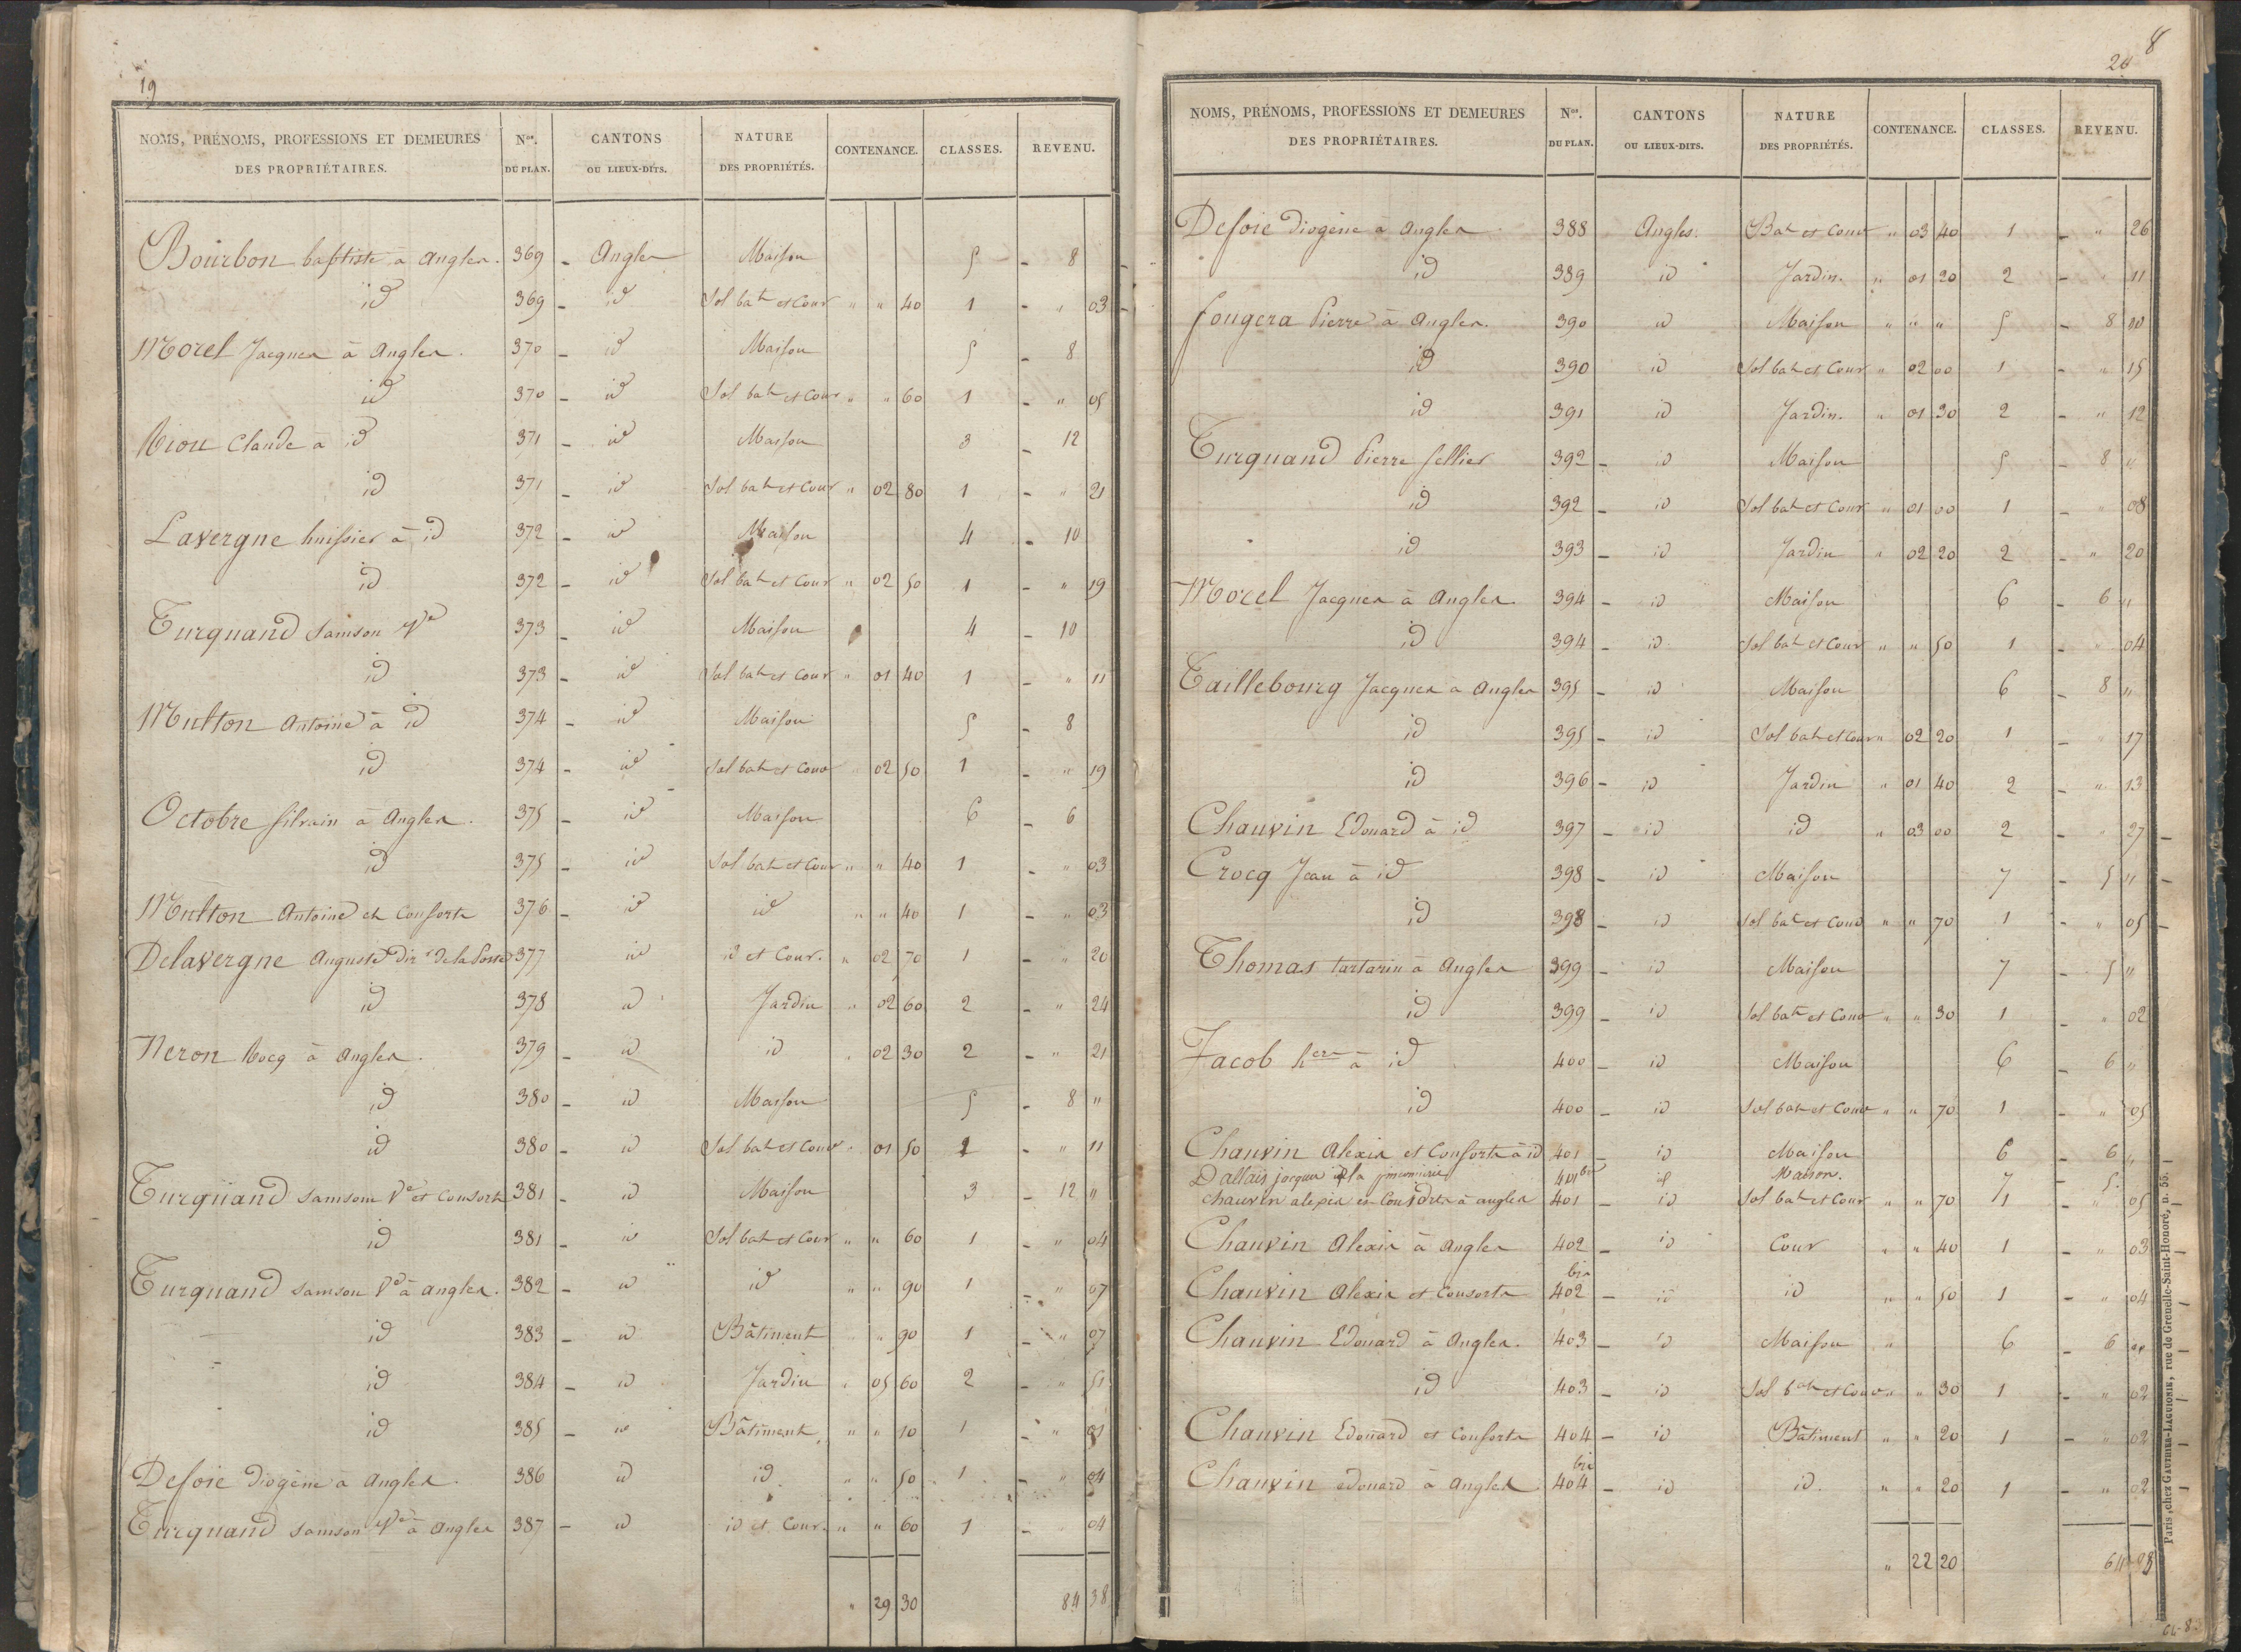 19
NOMS, PRÉNOMS, PROFESSIONS ET DEMEURES DES PROPRIÉTAIRES. Nos. DU PLAN. CANTONS OU LIEUX-DITS. NATURE DES PROPRIÉTÉS. CONTENANCE. CLASSES. REVENU.
Bourbon baptiste à Angles. 369 - Angles Maison 5 - 8
id 369 - id Sol bat et Cour " " 40 1 - " 03
Morel Jacques à Angles. 370 - id Maison 5 - 8
id 370 - id Sol bat et Cour " " 60 1 - " 05
Riou Claude à id 371 - id Maison 3 - 12
id 371 - id Sol bat et Cour " 02 80 1 - " 21
Lavergne huissier à id 372 - id Maison 4 - 10
id 372 - id Sol bat et Cour " 02 50 1 - " 19
Turquand Samson Ve 373 - id Maison 4 - 10
id 373 - id Sol bat et Cour " 01 40 1 - " 11
Multon Antoine à id 374 - id Maison 5 - 8
id 374 - id Sol bat et Cour " 02 50 1 - " 19
Octobre Silvain à Angles. 375 - id Maison 6 - 6
id 375 - id Sol bat et Cour " " 40 1 - " 03
Multon Antoine et Consorts 376 - id id " " 40 1 - " 03
Delavergne Auguste Dir de la Poste 377 id id et Cour. " 02 70 1 - " 20
id 378 id Jardin " 02 60 2 - " 24
Neron Rocq à Angles. 379 - id id " 02 30 2 - " 21
id 380 - id Maison 5 - 8 "
id 380 - id Sol bat et Cour " 01 50 1 - " 11
Turquand Samson Ve et Consorts 381 - id Maison 3 - 12 "
id 381 - id Sol bat et Cour " " 60 1 - " 04
Turquand Samson Ve à Angles. 382 - id id " " 90 1 - " 07
id 383 - id Bâtiment " " 90 1 - " 07
id 384 - id Jardin " 05 60 2 - " 51
id 385 - id Bâtiment " " 10 1 - " 01
Defoie Diogène à Angles. 386 id id " " 50 1 - " 04
Turquand Samson Ve à Angles 387 - id id et Cour. " " 60 1 - 04
" 29 30 84 38
8
20
NOMS, PRÉNOMS, PROFESSIONS ET DEMEURES DES PROPRIÉTAIRES. Nos. DU PLAN. CANTONS OU LIEUX-DITS. NATURE DES PROPRIÉTÉS. CONTENANCE. CLASSES. REVENU.
Defoie Diogène à Angles. 388 Angles. Bat et Cour " 03 40 1 - " 26
id 389 id Jardin. " 01 20 2 - " 11
Fougera Pierre à Angles. 390 id Maison " " " 5 - 8
id 390 id Sol bat et Cour " 02 00 1 - " 15
id 391 id Jardin. " 01 30 2 - " 12
Turquand Pierre Sellier 392 - id Maison 5 - 8 "
id 392 - id Sol bat et Cour " 01 00 1 - " 08
id 393 - id Jardin " 02 20 2 - " 20
Morel Jacques à Angles. 394 - id Maison 6 - 6 "
id 394 - id Sol bat et Cour " " 50 1 - " 04
Taillebourg Jacques à Angles 395 - id Maison 6 - 8 "
id 395 - id Sol bat et Cour " 02 20 1 - " 17
id 396 - id Jardin " 01 40 2 - " 13
Chauvin Edouard à id 397 - id id " 03 00 2 - " 27
Crocq Jean à id 398 - id Maison 7 - 5 "
id 398 - id Sol bat et Cour " " 70 1 - " 05
Thomas tartarin à Angles 399 - id Maison 7 - 5 "
id 399 - id Sol bat et Cour " " 30 1 - " 02
Jacob hers à id 400 - id Maison 6 - 6 "
id 400 - id Sol bat et Cour " " 70 1 - " 05
Chauvin Alexis et Consorts à id 401 - id Maison 6 - 6 "
Dallais jacques à la 401 bis id Maison. 7 - 5.
Chauvin alexis et Consorts à angles 401 - id Sol bat et Cour " " 70 1 - " 05
Chauvin Alexis à Angles 402 - id Cour " " 40 1 - " 03
Chauvin Alexis et Consorts 402 bis - id id " " 50 1 - " 04
Chauvin Edouard à Angles. 403 - id Maison " 6 - 6 "
id 403 - id Sol bat et Cour " " 30 1 - " 02
Chauvin Edouard et Consorts 404 - id Bâtiment " " 20 1 - " 02
Chauvin edouard à Angles 404 bis - id id. " " 20 1 - " 02
" 22 20
Paris, chez GAUTHIER-LAGUIONIE, rue de Grenelle-Saint-Honoré, n. 55.